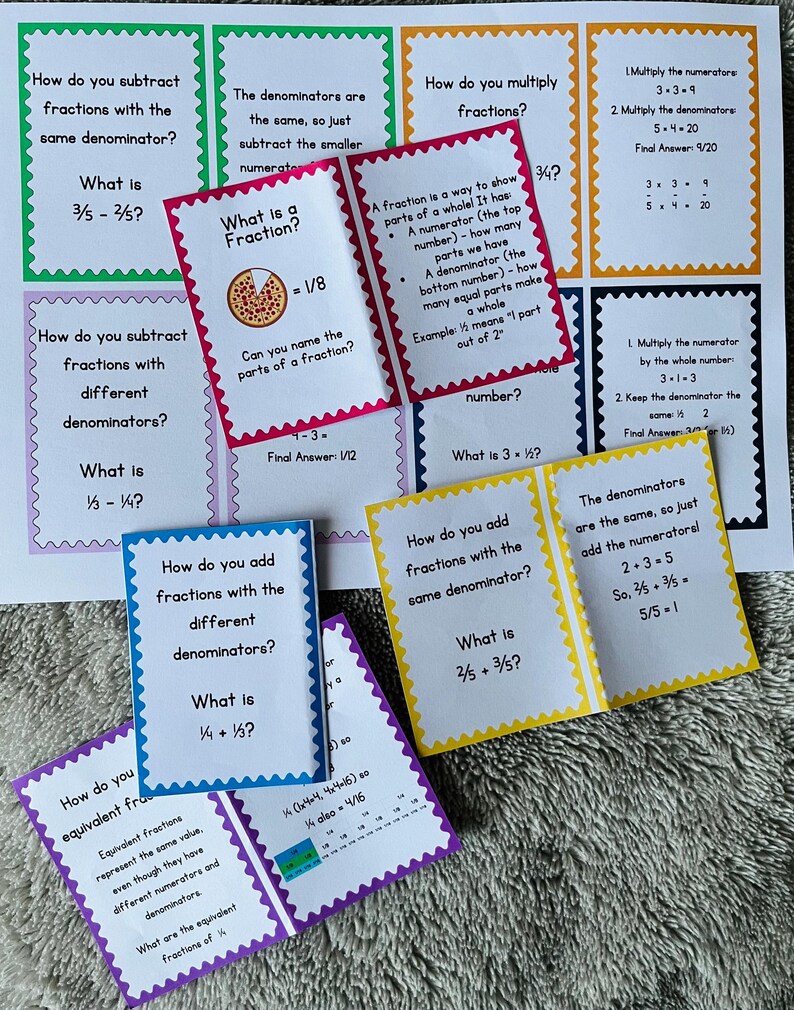 How do you subtract
fractions with the
same denominator?
What is
⅗ - ⅖?
The denominators are
the same, so just
subtract the smaller
numerator
How do you multiply
fractions?
¾?
1.Multiply the numerators:
3 × 3 = 9
2. Multiply the denominators:
5 × 4 = 20
Final Answer: 9/20
3 x 3 = 9
- - -
5 x 4 = 20
What is a
Fraction?
= 1/8
Can you name the
parts of a fraction?
A fraction is a way to show
parts of a whole! It has:
• A numerator (the top
number) - how many
parts we have
• A denominator (the
bottom number) - how
many equal parts make
a whole
Example: ½ means "1 part
out of 2"
How do you subtract
fractions with
different
denominators?
What is
⅓ - ¼?
4 - 3 =
Final Answer: 1/12
whole
number?
What is 3 × ½?
1. Multiply the numerator
by the whole number:
3 × 1 = 3
2. Keep the denominator the
same: ½ 2
Final Answer: 3/2 (or 1½)
How do you add
fractions with the
same denominator?
What is
⅖ + ⅗?
The denominators
are the same, so just
add the numerators!
2 + 3 = 5
So, ⅖ + ⅗ =
5/5 = 1
How do you add
fractions with the
different
denominators?
What is
¼ + ⅓?
How do you
equivalent
Equivalent fractions
represent the same value,
even though they have
different numerators and
denominators.
What are the equivalent
fractions of ¼
or
by a
or
) so
¼ (1x4=4, 4x4=16) so
¼ also = 4/16